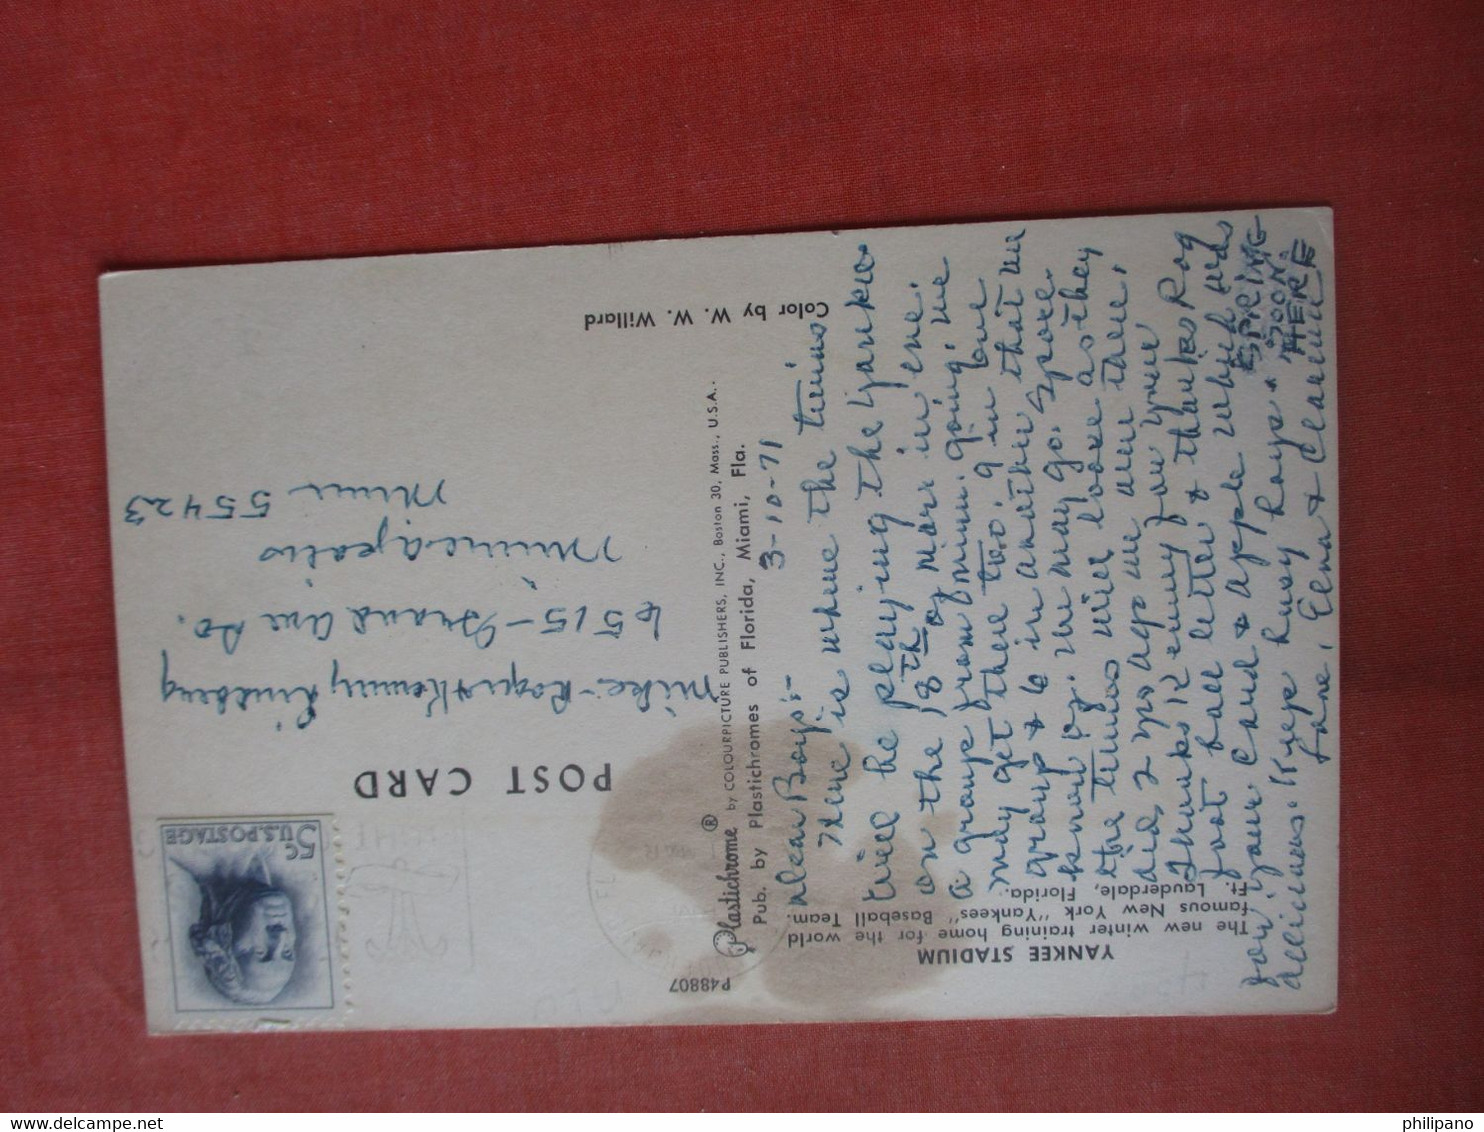 YANKEE STADIUM
The new winter training home for the world
famous New York "Yankees" Baseball Team.
Ft. Lauderdale, Florida.
P48807
Plastichrome® by COLOURPICTURE PUBLISHERS, INC., Boston 30, Mass., U.S.A.
Pub. by Plastichromes of Florida, Miami, Fla.
Color by W. W. Willard
POST CARD
5c
U.S. POSTAGE
Mike-Roger & Kenny Lindberg
6515-Grand Ave So.
Minneapolis
Minn 55423
3-10-71
Dear Boys:-
There is where the twins
will be playing the Yankee
on the 18th of Mar in eve.
a group from Minn. going, we
may get there too. 9 in one
group & 6 in another that we
know of. We may go. Spose
the twins will loose as they
did 2 yrs ago we were there.
Thanks Kenny for your
foot ball letter & thanks Rog
for your card & apple which was
delicious. Keep busy boys.
SPRING
SOON
HERE
Love, Elna & Clarence
philipano